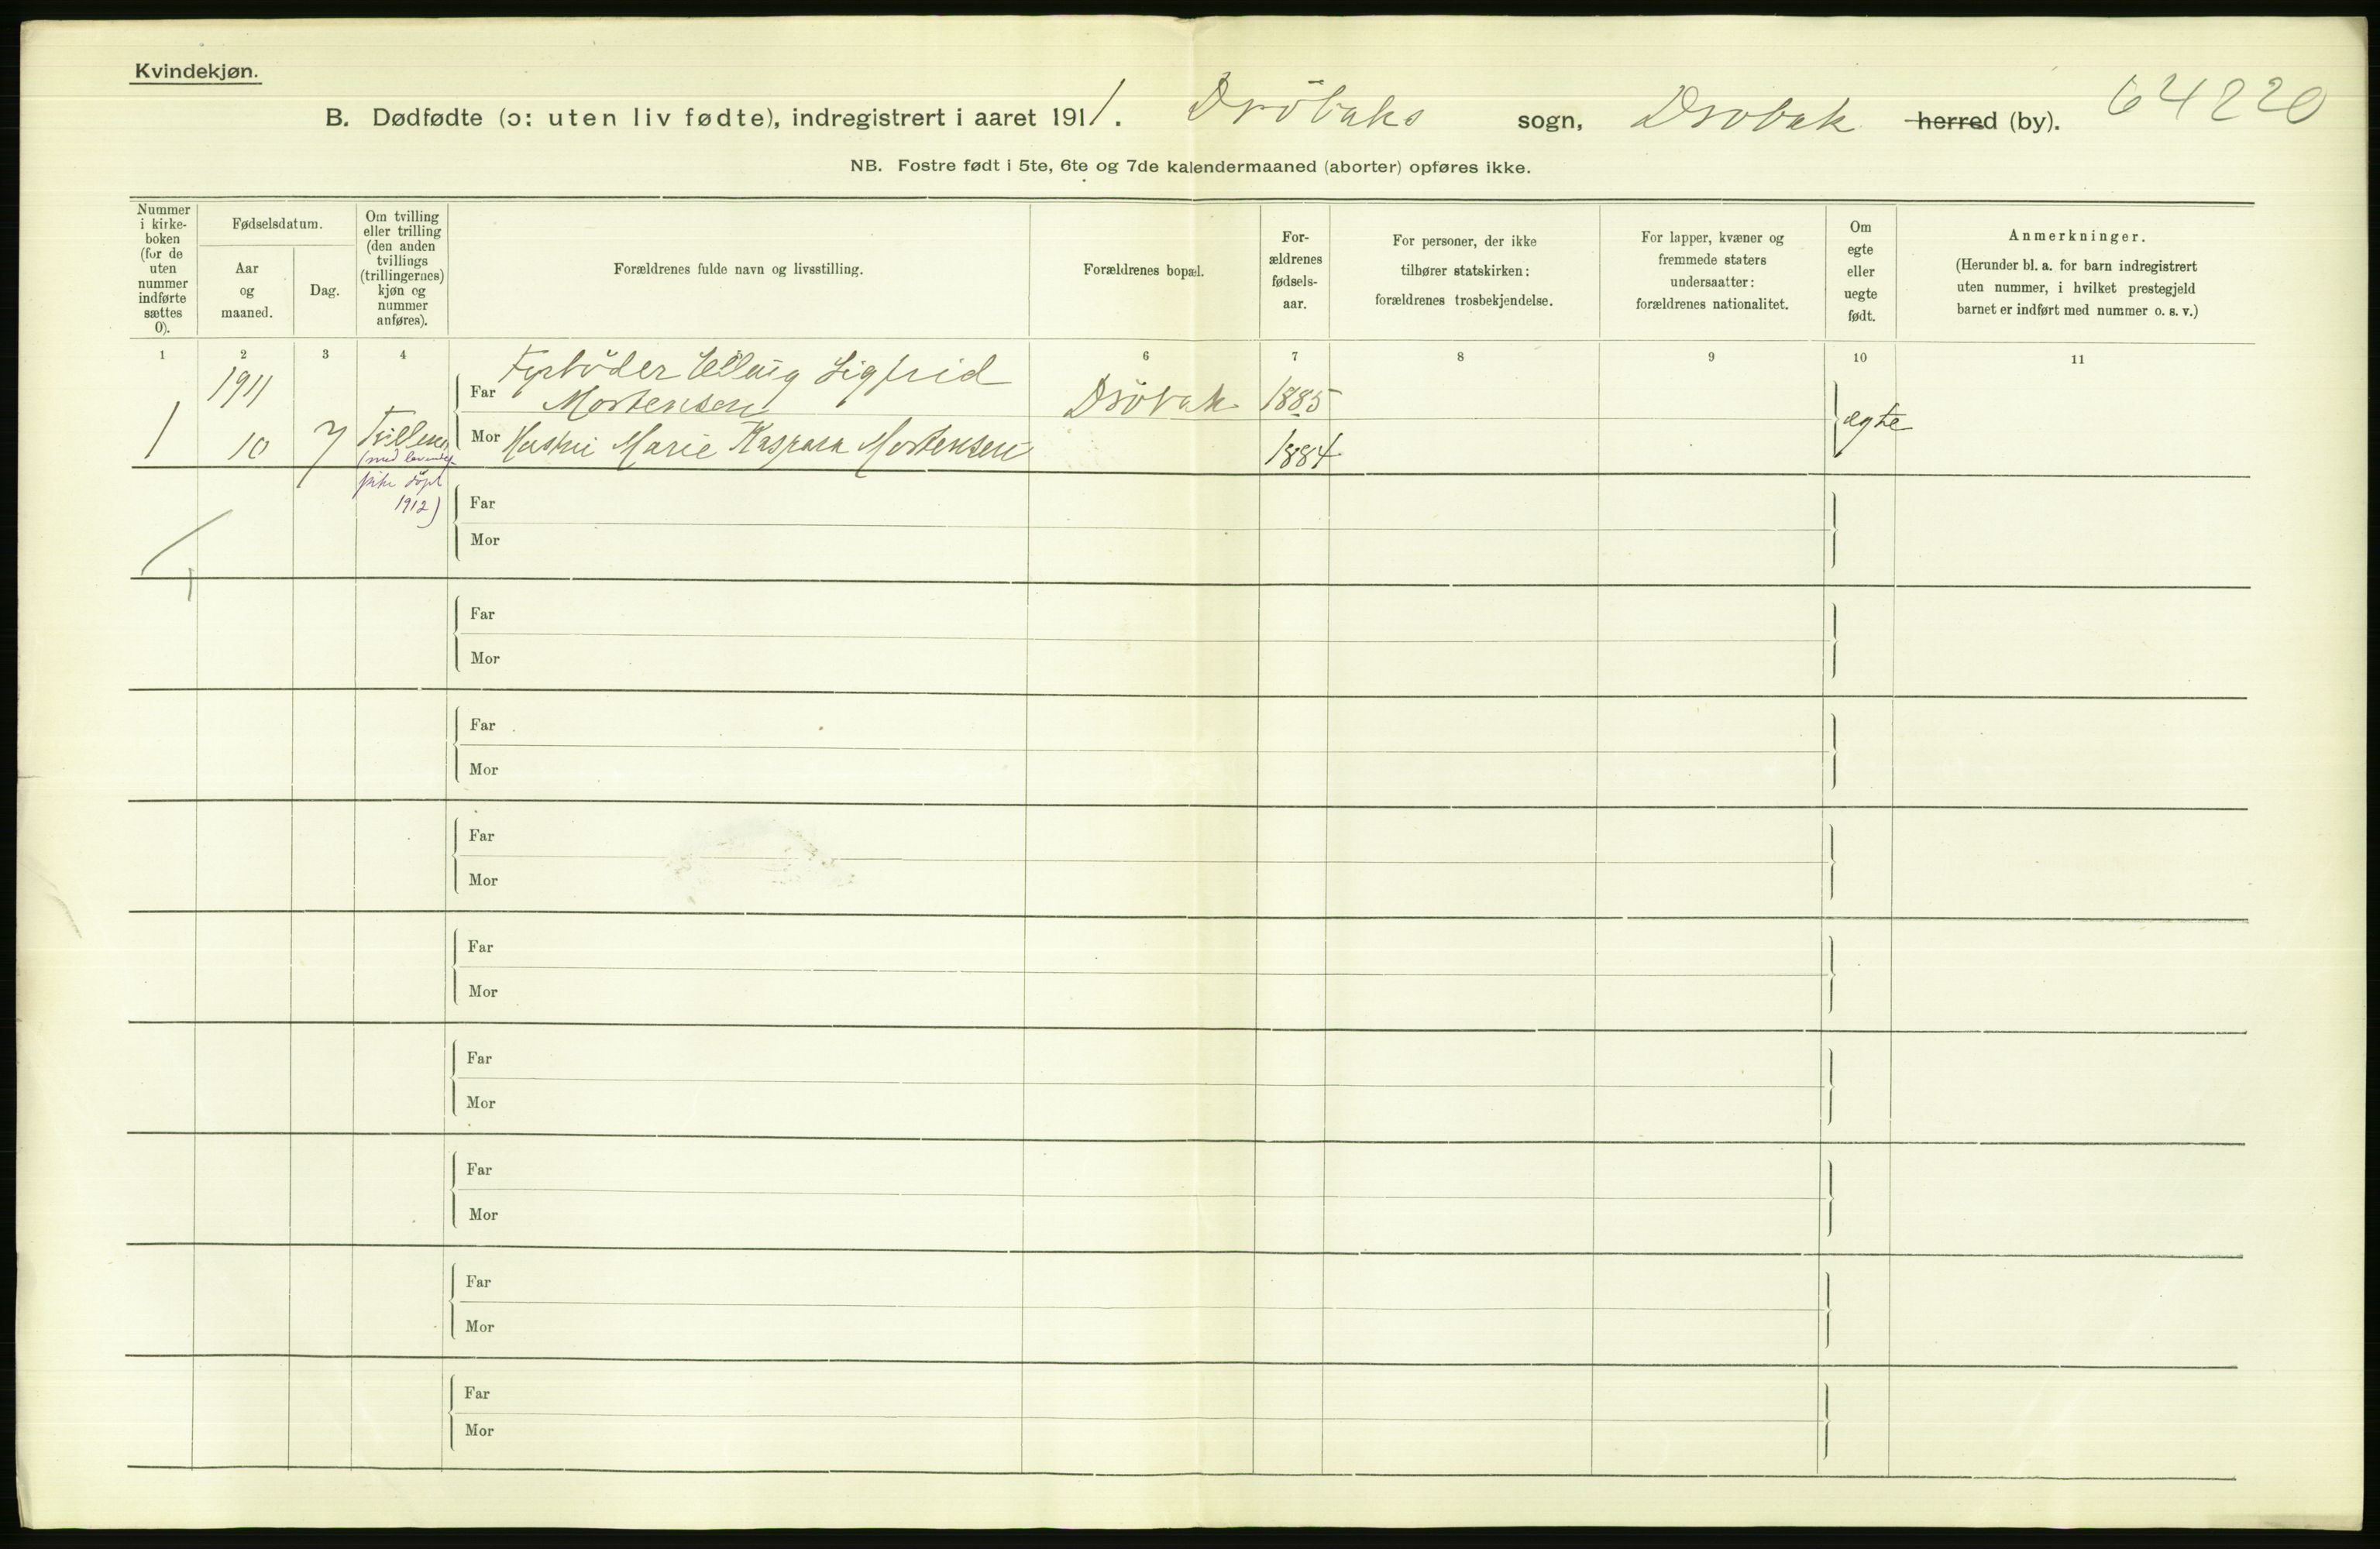 Kvindekjøn.
B. Dødfødte (ɔ: uten liv fødte), indregistrert i aaret 1911. Drøbaks sogn, Drøbak herred (by). 64220
NB. Fostre født i 5te, 6te og 7de kalendermaaned (aborter) opføres ikke.
Nummer
i kirke-
boken
(for de
uten
nummer
indførte
sættes
0).
Fødselsdatum.
Aar
og
maaned.
Dag.
Om tvilling
eller trilling
(den anden
tvillings
(trillingernes)
kjøn og
nummer
anføres).
Forældrenes fulde navn og livsstilling.
Forældrenes bopæl.
For-
ældrenes
fødsels-
aar.
For personer, der ikke
tilhører statskirken:
forældrenes trosbekjendelse.
For lapper, kvæner og
fremmede staters
undersaatter:
forældrenes nationalitet.
Om
egte
eller
uegte
født.
Anmerkninger.
(Herunder bl. a. for barn indregistrert
uten nummer, i hvilket prestegjeld
barnet er indført med nummer o. s. v.)
1 2 3 4 6 7 8 9 10 11
1911
Fyrbøder Elling Sigfrid
Far Mortensen Drøbak 1885
ægte
1 10 7 Tvilling Mor Hustru Marie Kaspara Mortensen 1884
(med levende
pike døpt
1912)
Far
Mor
Far
Mor
Far
Mor
Far
Mor
Far
Mor
Far
Mor
Far
Mor
Far
Mor
Far
Mor